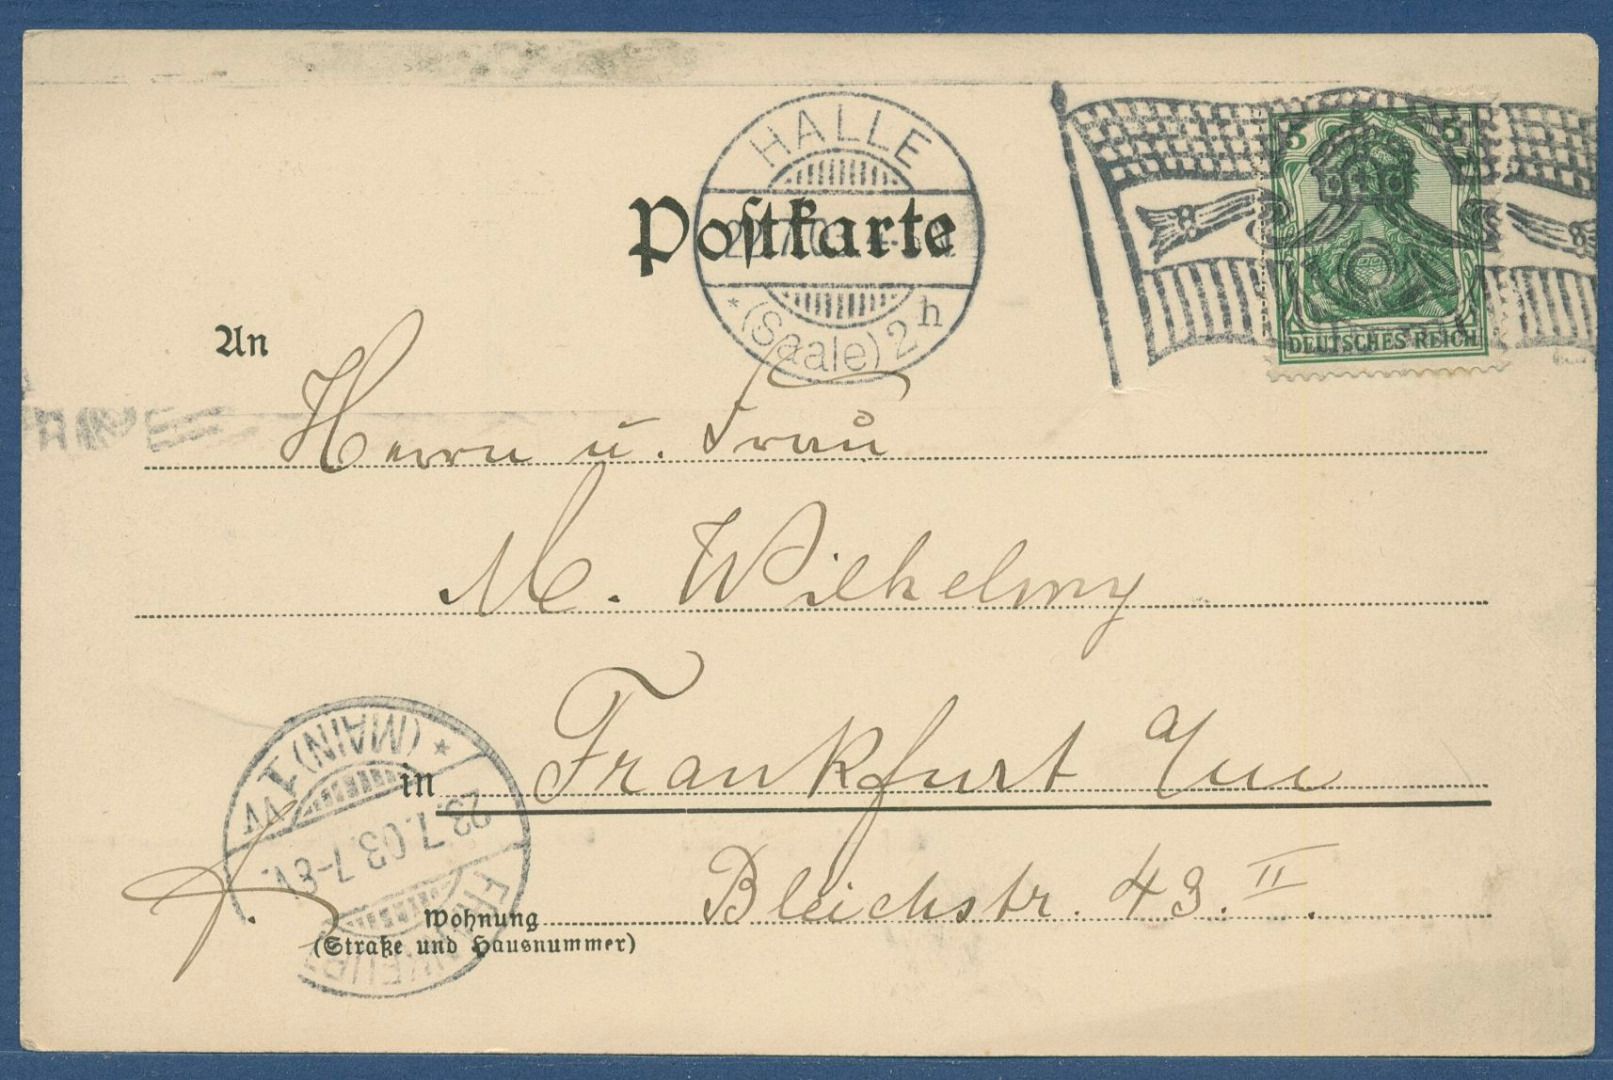 HALLE
5 5
Postkarte
(Saale) 2h
DEUTSCHES REICH
An
Herrn u. Frau
M. Wilhelmy
(MAIN) 1
in Frankfurt a/M
23.7.03.7-8V.
Bleichstr. 43. II.
Wohnung
(Straße und Hausnummer)